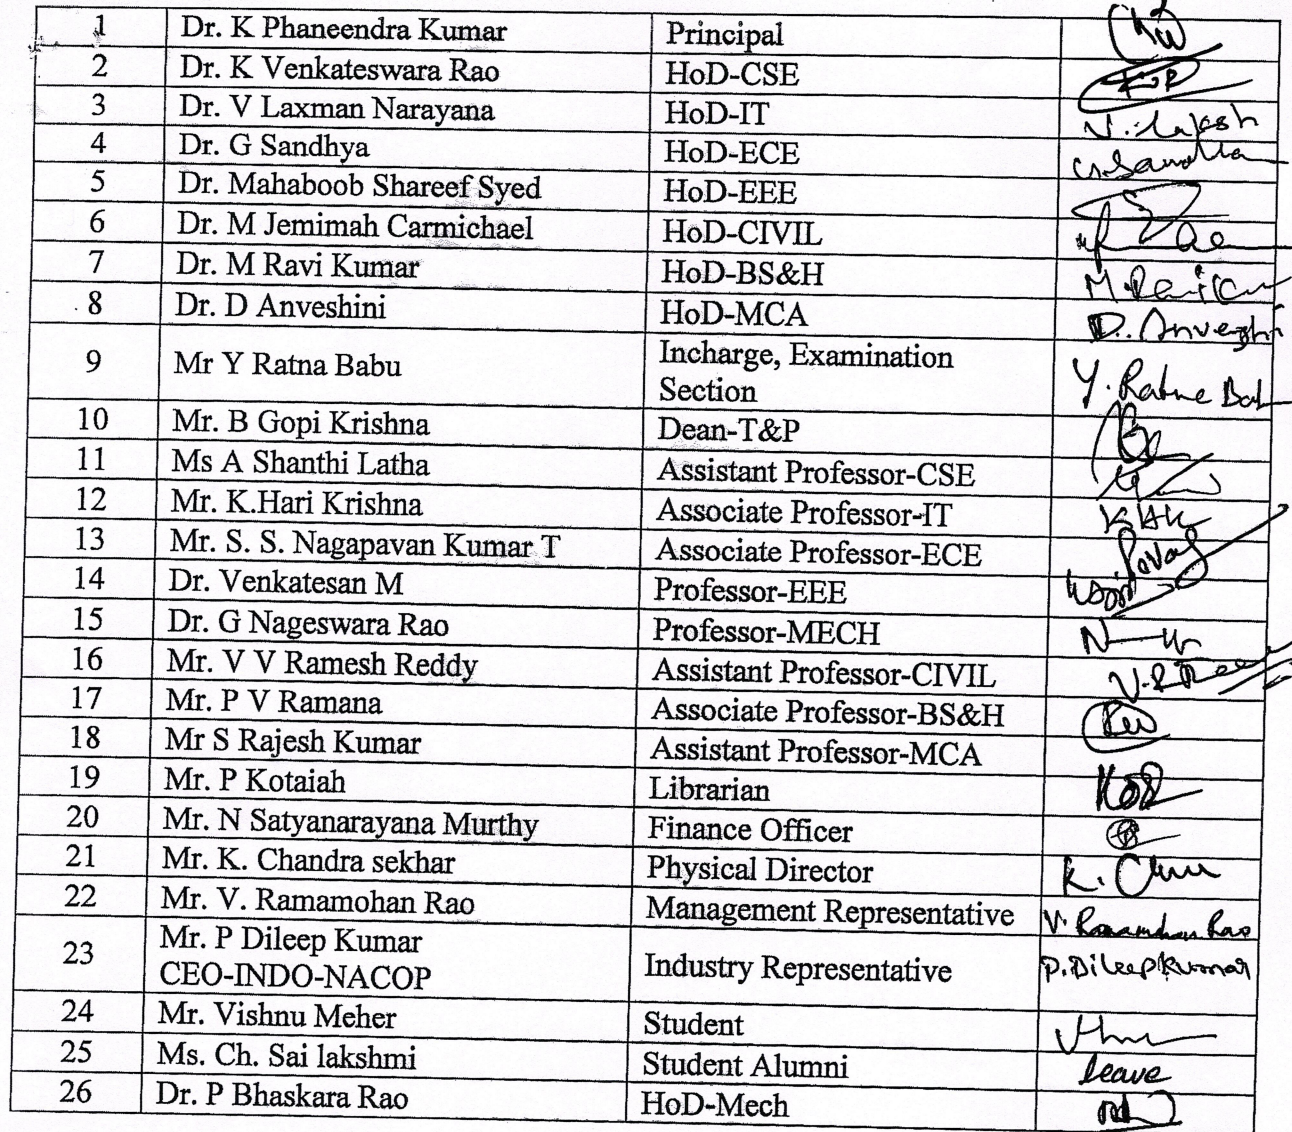 1 Dr. K Phaneendra Kumar Principal
2 Dr. K Venkateswara Rao HoD-CSE
3 Dr. V Laxman Narayana HoD-IT
4 Dr. G Sandhya HoD-ECE
5 Dr. Mahaboob Shareef Syed HoD-EEE
6 Dr. M Jemimah Carmichael HoD-CIVIL
7 Dr. M Ravi Kumar HoD-BS&H
8 Dr. D Anveshini HoD-MCA
9 Mr Y Ratna Babu Incharge, Examination
Section
10 Mr. B Gopi Krishna Dean-T&P
11 Ms A Shanthi Latha Assistant Professor-CSE
12 Mr. K.Hari Krishna Associate Professor-IT
13 Mr. S. S. Nagapavan Kumar T Associate Professor-ECE
14 Dr. Venkatesan M Professor-EEE
15 Dr. G Nageswara Rao Professor-MECH
16 Mr. V V Ramesh Reddy Assistant Professor-CIVIL
17 Mr. P V Ramana Associate Professor-BS&H
18 Mr S Rajesh Kumar Assistant Professor-MCA
19 Mr. P Kotaiah Librarian
20 Mr. N Satyanarayana Murthy Finance Officer
21 Mr. K. Chandra sekhar Physical Director
22 Mr. V. Ramamohan Rao Management Representative
23 Mr. P Dileep Kumar Industry Representative P.Dileep Kumar
CEO-INDO-NACOP
24 Mr. Vishnu Meher Student
25 Ms. Ch. Sai lakshmi Student Alumni leave
26 Dr. P Bhaskara Rao HoD-Mech